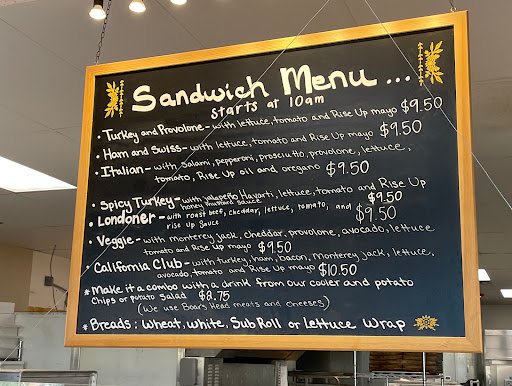 Sandwich Menu ...
starts at 10am
• Turkey and Provolone - with lettuce, tomato and Rise Up mayo $9.50
• Ham and Swiss - with lettuce, tomato and Rise Up mayo $9.50
• Italian - with salami, pepperoni, prosciutto, provolone, lettuce,
tomato, Rise Up oil and oregano $9.50
• Spicy Turkey - with jalapeño Havarti, lettuce, tomato and Rise Up
honey mustard sauce $9.50
• Londoner - with roast beef, cheddar, lettuce, tomato, and
rise up sauce $9.50
• Veggie - with Monterey jack, cheddar, provolone, avocado, lettuce
tomato and Rise Up mayo $9.50
• California Club - with turkey, ham, bacon, Monterey jack, lettuce,
avocado, tomato and Rise Up mayo $10.50
* Make it a combo with a drink from our cooler and potato
chips or potato salad $8.75
(We use Boars Head meats and cheeses)
* Breads: Wheat, White, Sub Roll or Lettuce Wrap